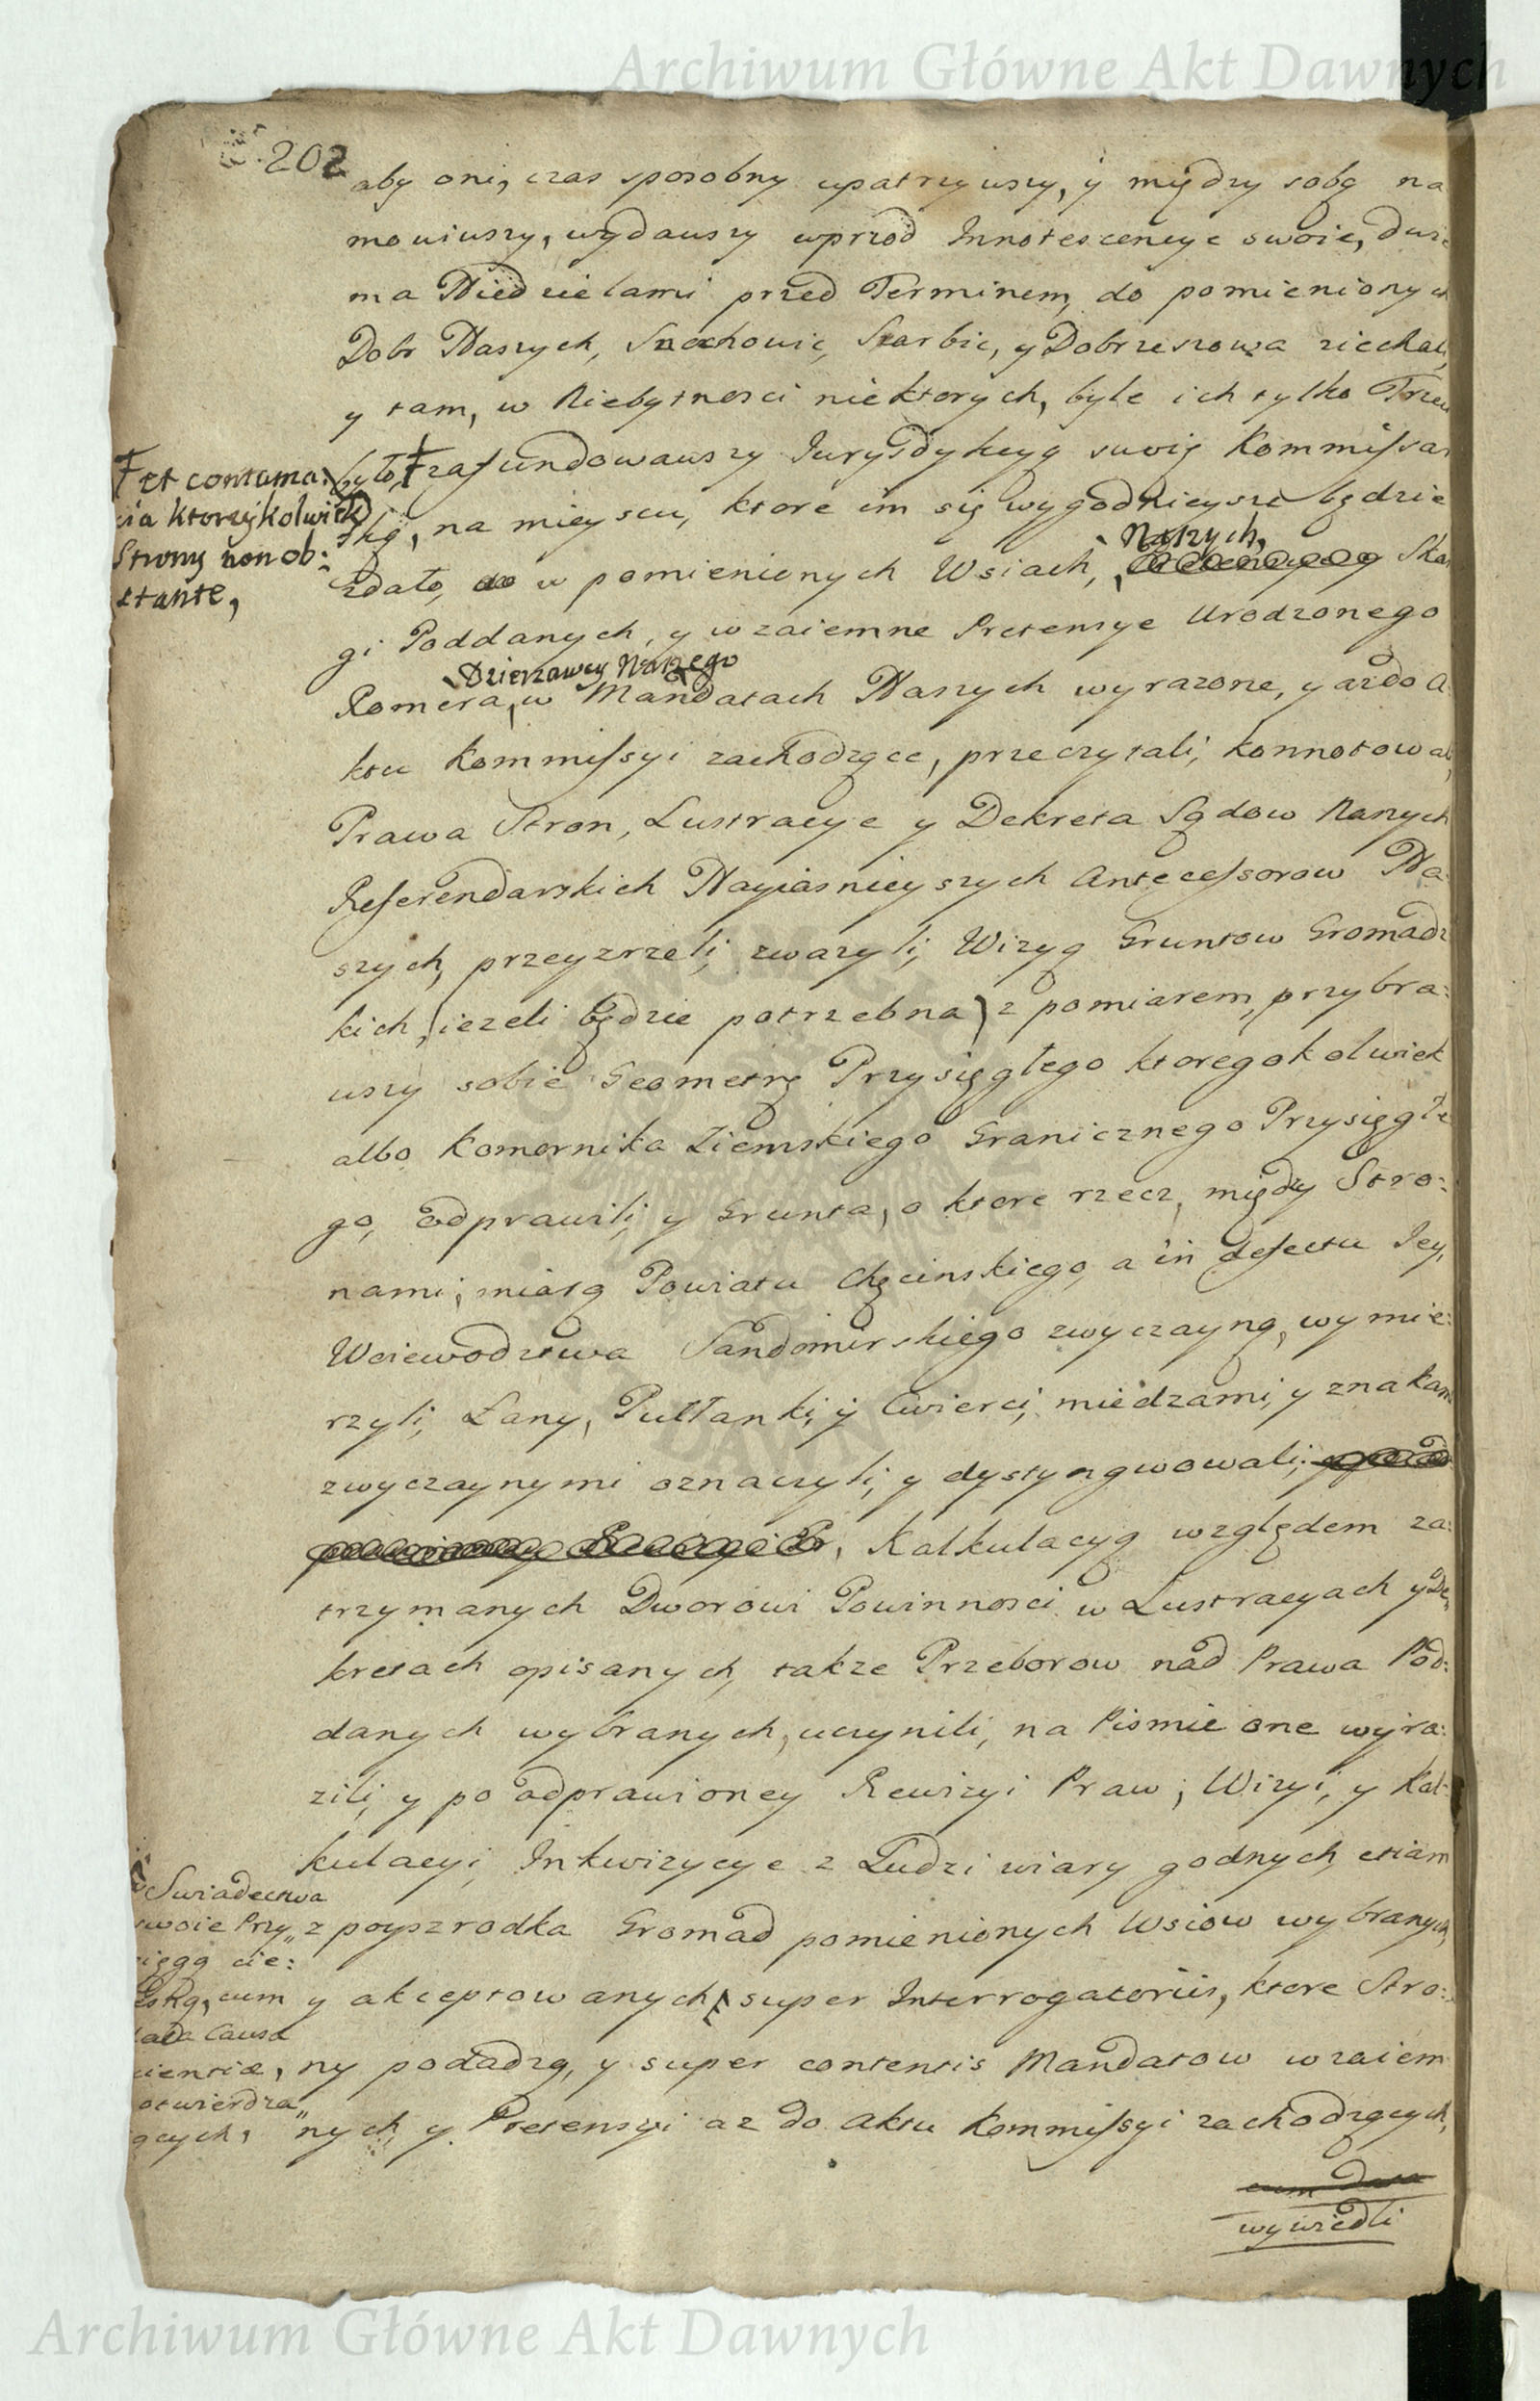 Archiwum Główne Akt Dawnych
202
aby oni, czas sposobny upatrzywszy, y między sobą na
mowiwszy, wydawszy wprzod Innotescencye swoie, dwie
ma Niedzielami przed Terminem, do pomienionych
Dobr Naszych, Snochowic, Skarbic, y Dobrzeszowa ziechali,
y tam, w Niebytnosci niektorych, byle ich tylko Trzech
było, ☨ zafundowawszy Jurysdykcyą swoię Kommissar
ską, na mieyscu, ktore im się wygodnieysze będzie
zdało, w pomienionych Wsiach, Naszych, Skar
gi Poddanych, y wzaiemne Pretensye Urodzonego
Romera, Dzierzawcy Naszego w Mandatach Naszych wyrazone, y az do A
ktu Kommissyi zachodzące, przeczytali, konnotowali,
Prawa Stron, Lustracye y Dekreta Sądow Nanych
Referendarskich Nayiasnieyszych Antecessorow Na:
szych, przeyzrzeli, zwazyli, Wizyą Gruntow Gromadz
kich, (iezeli będzie potrzebna) z pomiarem, przybra:
wszy sobie Geometrę Przysięgłego ktoregokolwiek
albo Komornika Ziemskiego Granicznego Przysięgłe
go, odprawili, y Grunta, o ktore rzecz, między Stro:
nami, miarą Powiatu Chęcinskiego, a in defectu Jey,
Woiewodztwa Sandomirskiego zwyczayną, wymie:
rzyli, Łany, Pułłanki, y Cwierci, miedzami, y znakami
zwyczaynymi oznaczyli, y dystyngwowali,
, Kalkulacyą względem za:
trzymanych Dworowi Powinnosci w Lustracyach y De,
kretach opisanych, takze Przeborow nad Prawa Pod:
danych wybranych, uczynili, na Pismie one wyra:
zili, y po odprawioney Rewizyi Praw, Wizyi, y Kal:
kulacyi, Inkwizycye z Ludzi wiary godnych etiam
z poyszrodka Gromad pomienionych Wsiow wybranych,
y akceptowanych, super Interrogatoriis, ktore Stro:
ny podadzą, y super contentis Mandatow wzaiem
"nych, y Pretensyi az do Aktu Kommissyi zachodzących,
cum data
wywiedli
☨ et contuma:
cia ktorzykolwiek
Strony non ob:
stante,
Swiadectwa
swoie Przy„
sięgą cie:
lesną, cum
data Causa
scientiæ,
potwierdza„
iących,
Archiwum Główne Akt Dawnych